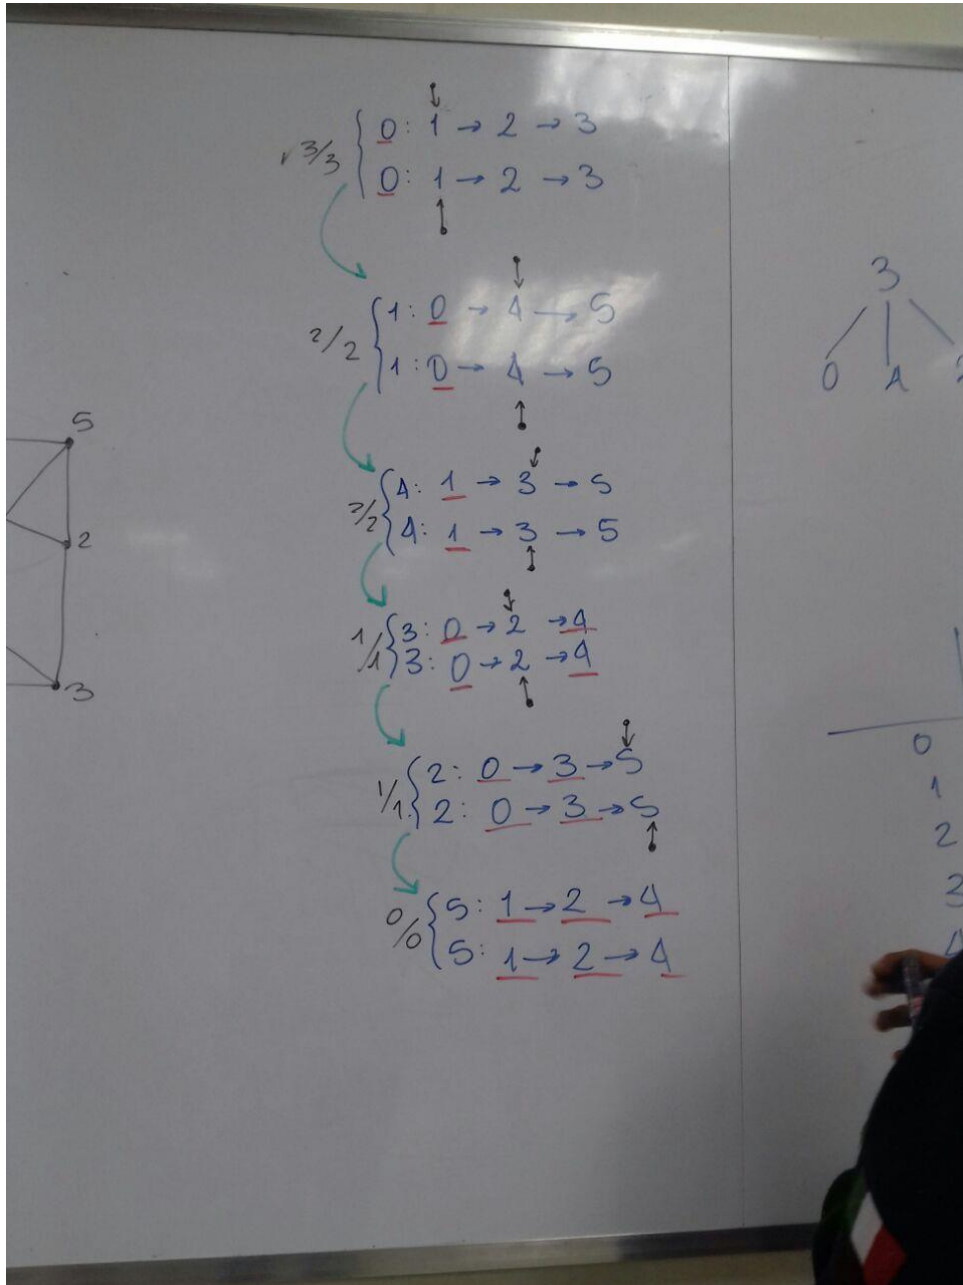 3/3
0: 1 → 2 → 3
0: 1 → 2 → 3
2/2
1: 0 → 4 → 5
1: 0 → 4 → 5
2/2
4: 1 → 3 → 5
4: 1 → 3 → 5
1/1
3: 0 → 2 → 4
3: 0 → 2 → 4
1/1
2: 0 → 3 → 5
2: 0 → 3 → 5
0/0
5: 1 → 2 → 4
5: 1 → 2 → 4
5
2
3
3
0 4
0
1
2
3
4